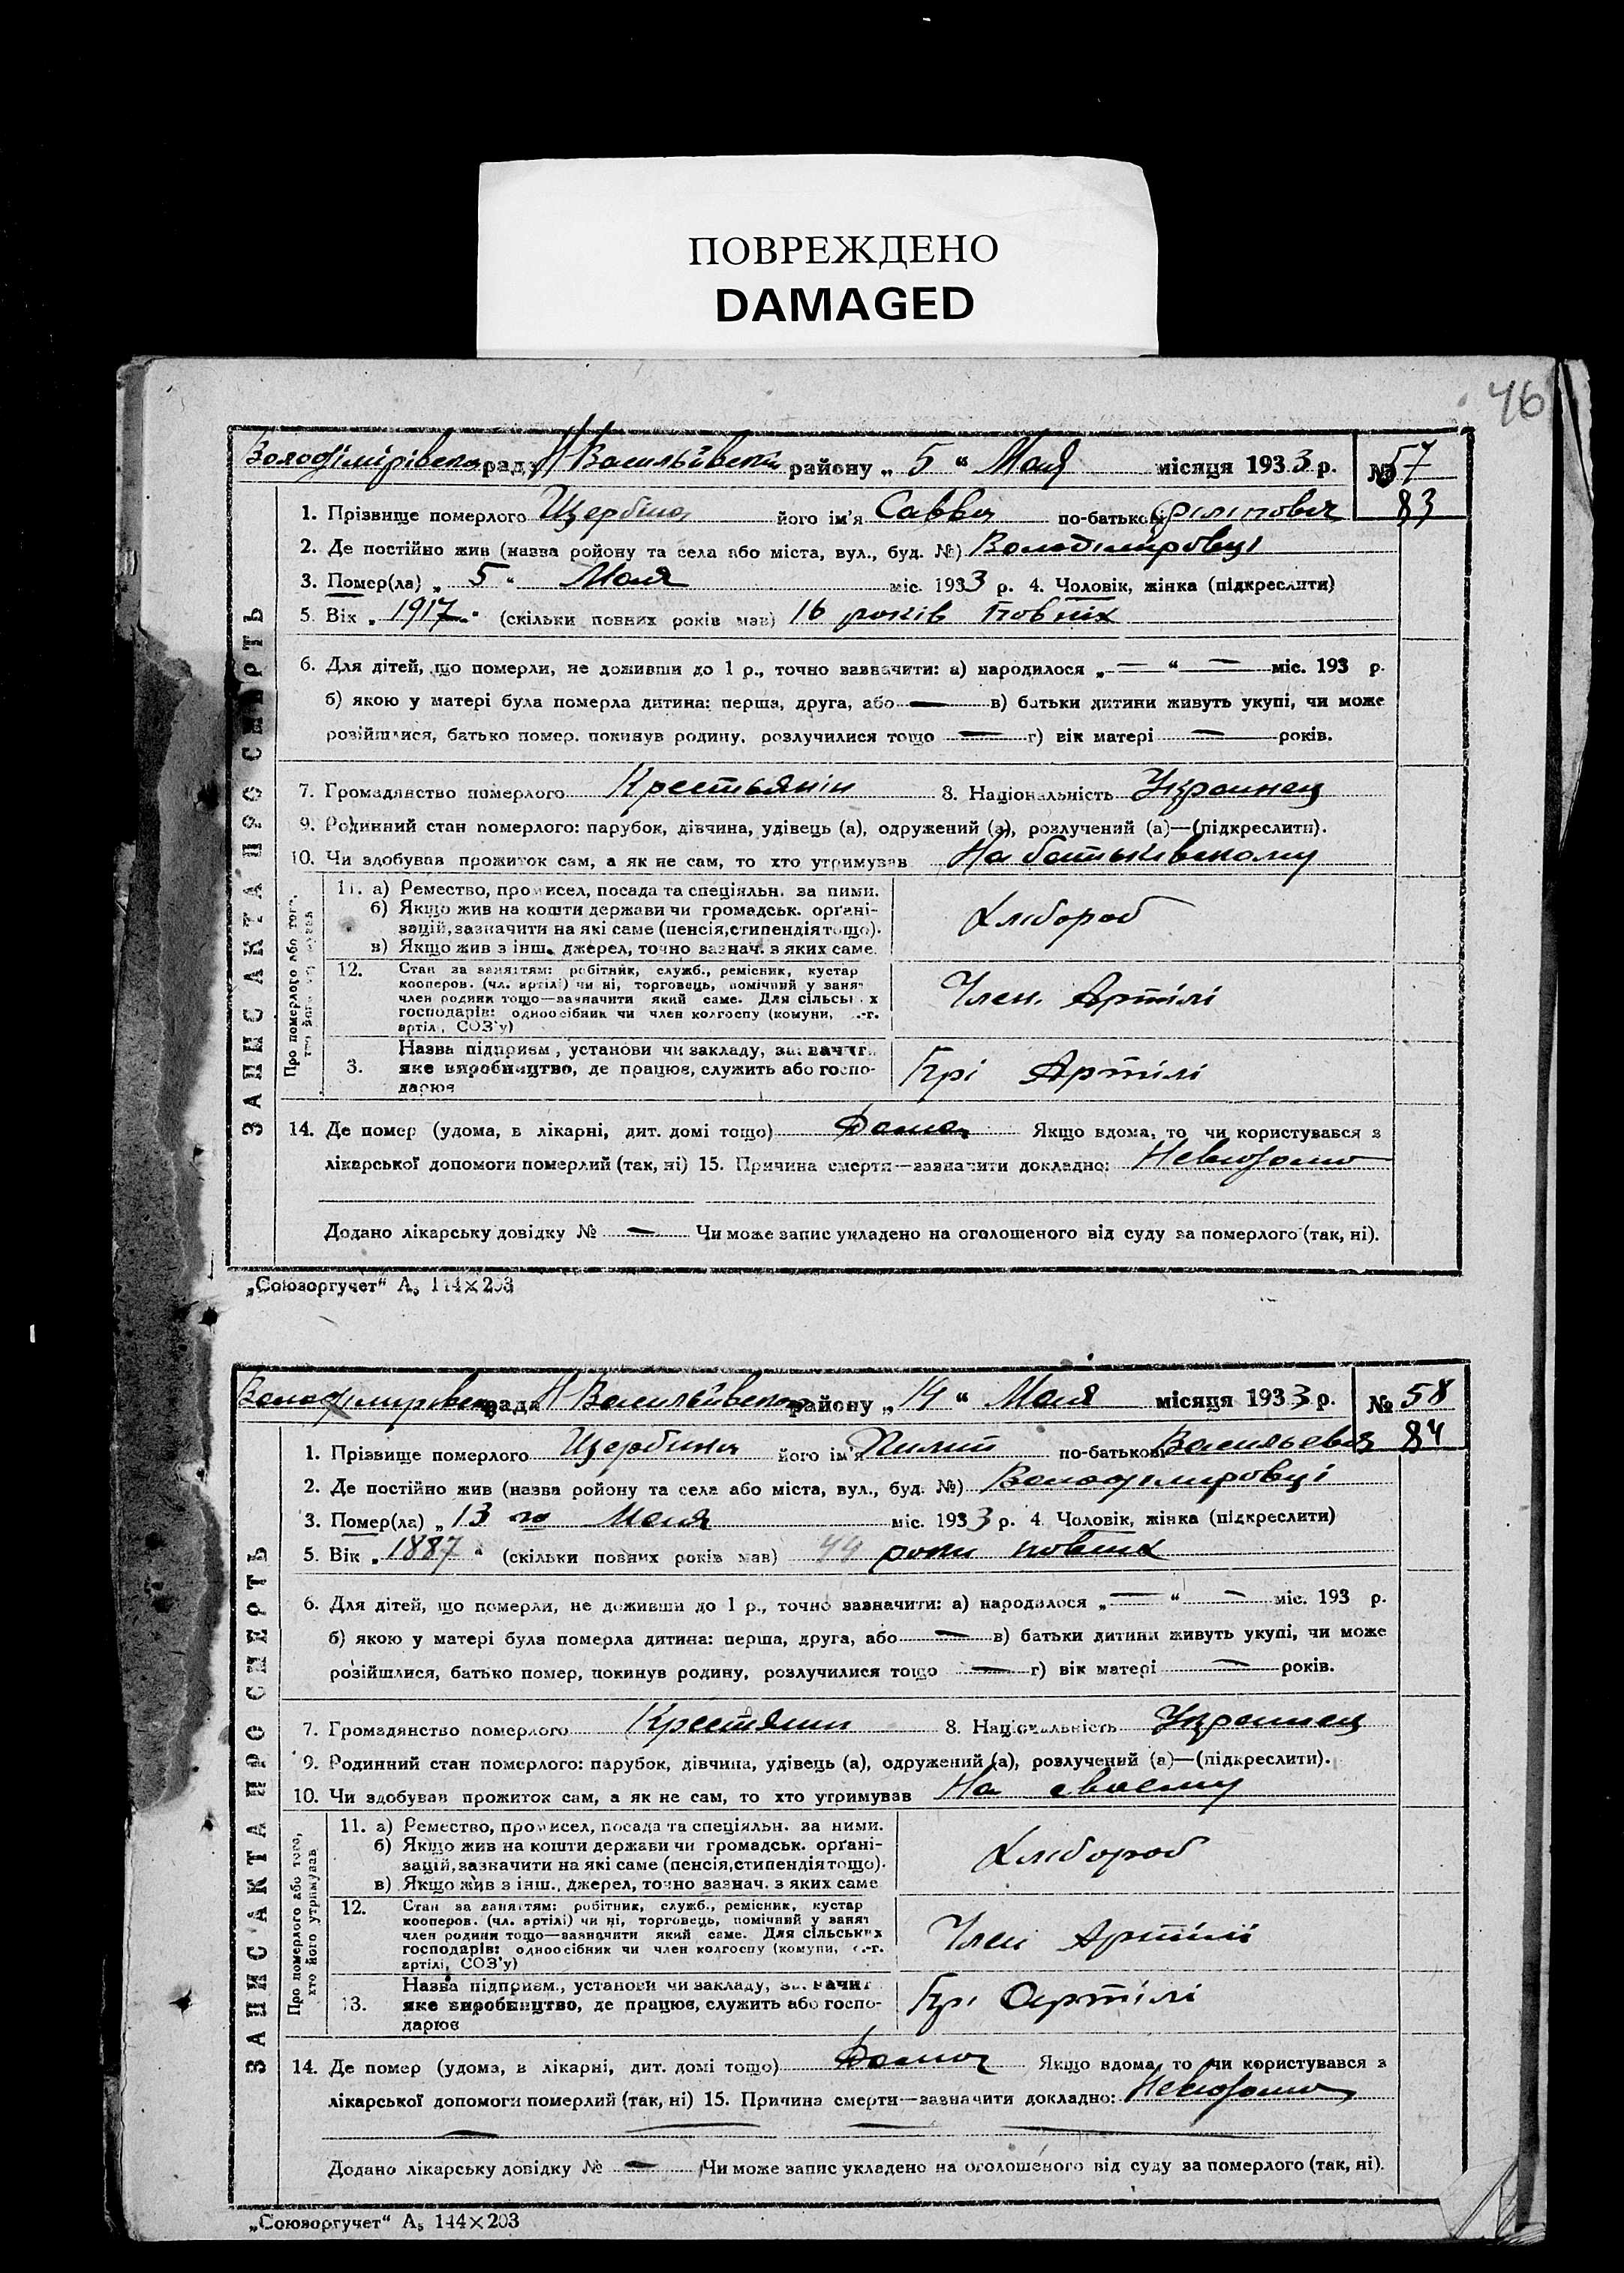 ПОВРЕЖДЕНО
DAMAGED
46
Володімірівска рад Н Васильївски району „ 5 “ Мая місяця 1933 р. № 57
83
1. Прізвище померлого Щербіна його ім’я Савва по-батькові Філіпович
2. Де постійно жив (назва ройону та села або міста, вул., буд. №) Володіміровці
3. Помер(ла) „ 5 “ Мая міс. 1933 р. 4. Чоловік, жінка (підкреслити)
5. Вік „ 1917 “ (скільки повних років мав) 16 років повніх
6. Для дітей, що померли, не доживши до 1 р., точно зазначити: а) народилося „ — “ — міс. 193 р.
б) якою у матері була померла дитина: перша, друга, або — в) батьки дитини живуть укупі, чи може
розійшлися, батько помер, покинув родину, розлучилися тощо — г) вік матері — років.
7. Громадянство померлого Крестьянін 8. Національність Украинец
9. Родинний стан померлого: парубок, дівчина, удівець (а), одружений (а), розлучений (а)—(підкреслити).
10. Чи здобував прожиток сам, а як не сам, то хто утримував На батьківскому
ЗАПИС АКТА ПРО СМЕРТЬ
Про померлого або того,
хто його утримував
11. а) Ремество, промисел, посада та спеціяльн. за ними.
б) Якщо жив на кошти держави чи громадськ. орґані-
зацій, зазначити на які саме (пенсія, стипендія тощо).
в) Якщо жив з інш. джерел, точно зазнач. з яких саме.
Хлібороб
12. Стан за заняттям: робітник, служб., ремісник, кустар
кооперов. (чл. артілі) чи ні, торговець, помічний у занят
член родини тощо—зазначити який саме. Для сільських
господарів: одноосібник чи член колгоспу (комуни, с.-г.
артілі, СОЗ’у)
Член Артілі
3. Назва підприєм., установи чи закладу, зазначити
яке виробництво, де працює, служить або госпо-
дарює
Прі Артілі
14. Де помер (удома, в лікарні, дит. домі тощо) Дома Якщо вдома, то чи користувався з
лікарської допомоги померлий (так, ні) 15. Причина смерти—зазначити докладно: Невідомо
Додано лікарську довідку № — Чи може запис укладено на оголошеного від суду за померлого (так, ні).
„Союзоргучет“ А5 144×203
Володімирівска рада Н Васильївского району „ 14 “ Мая місяця 1933 р. № 58
84
1. Прізвище померлого Щербина його ім’я Пилип по-батькові Васильевич
2. Де постійно жив (назва ройону та села або міста, вул., буд. №) Володимировці
3. Помер(ла) „ 13 го Мая міс. 1933 р. 4. Чоловік, жінка (підкреслити)
5. Вік „ 1887 “ (скільки повних років мав) 44 роки повних
6. Для дітей, що померли, не доживши до 1 р., точно зазначити: а) народилося „ — “ — міс. 193 р.
б) якою у матері була померла дитина: перша, друга, або — в) батьки дитини живуть укупі, чи може
розійшлися, батько помер, покинув родину, розлучилися тощо — г) вік матері — років.
7. Громадянство померлого Крестянин 8. Національність Украинец
9. Родинний стан померлого: парубок, дівчина, удівець (а), одружений (а), розлучений (а)—(підкреслити).
10. Чи здобував прожиток сам, а як не сам, то хто утримував На своему
ЗАПИС АКТА ПРО СМЕРТЬ
Про померлого або того,
хто його утримував
11. а) Ремество, промисел, посада та спеціяльн. за ними.
б) Якщо жив на кошти держави чи громадськ. орґані-
зацій, зазначити на які саме (пенсія, стипендія тощо).
в) Якщо жив з інш., джерел, точно зазнач. з яких саме
Хлібороб
12. Стан за заняттям: робітник, служб., ремісник, кустар
кооперов. (чл. артілі) чи ні, торговець, помічний у занят
член родини тощо—зазначити який саме. Для сільських
господарів: одноосібник чи член колгоспу (комуни, с.-г.
артілі, СОЗ’у)
Член Артілі
13. Назва підприєм., установи чи закладу, зазначит
яке виробництво, де працює, служить або госпо-
дарює
Прі Артілі
14. Де помер (удома, в лікарні, дит. домі тощо) Дома Якщо вдома, то чи користувався з
лікарської допомоги померлий (так, ні) 15. Причина смерти—зазначити докладно: Невідомо
Додано лікарську довідку № — Чи може запис укладено на оголошеного від суду за померлого (так, ні).
„Союзоргучет“ А5 144×203